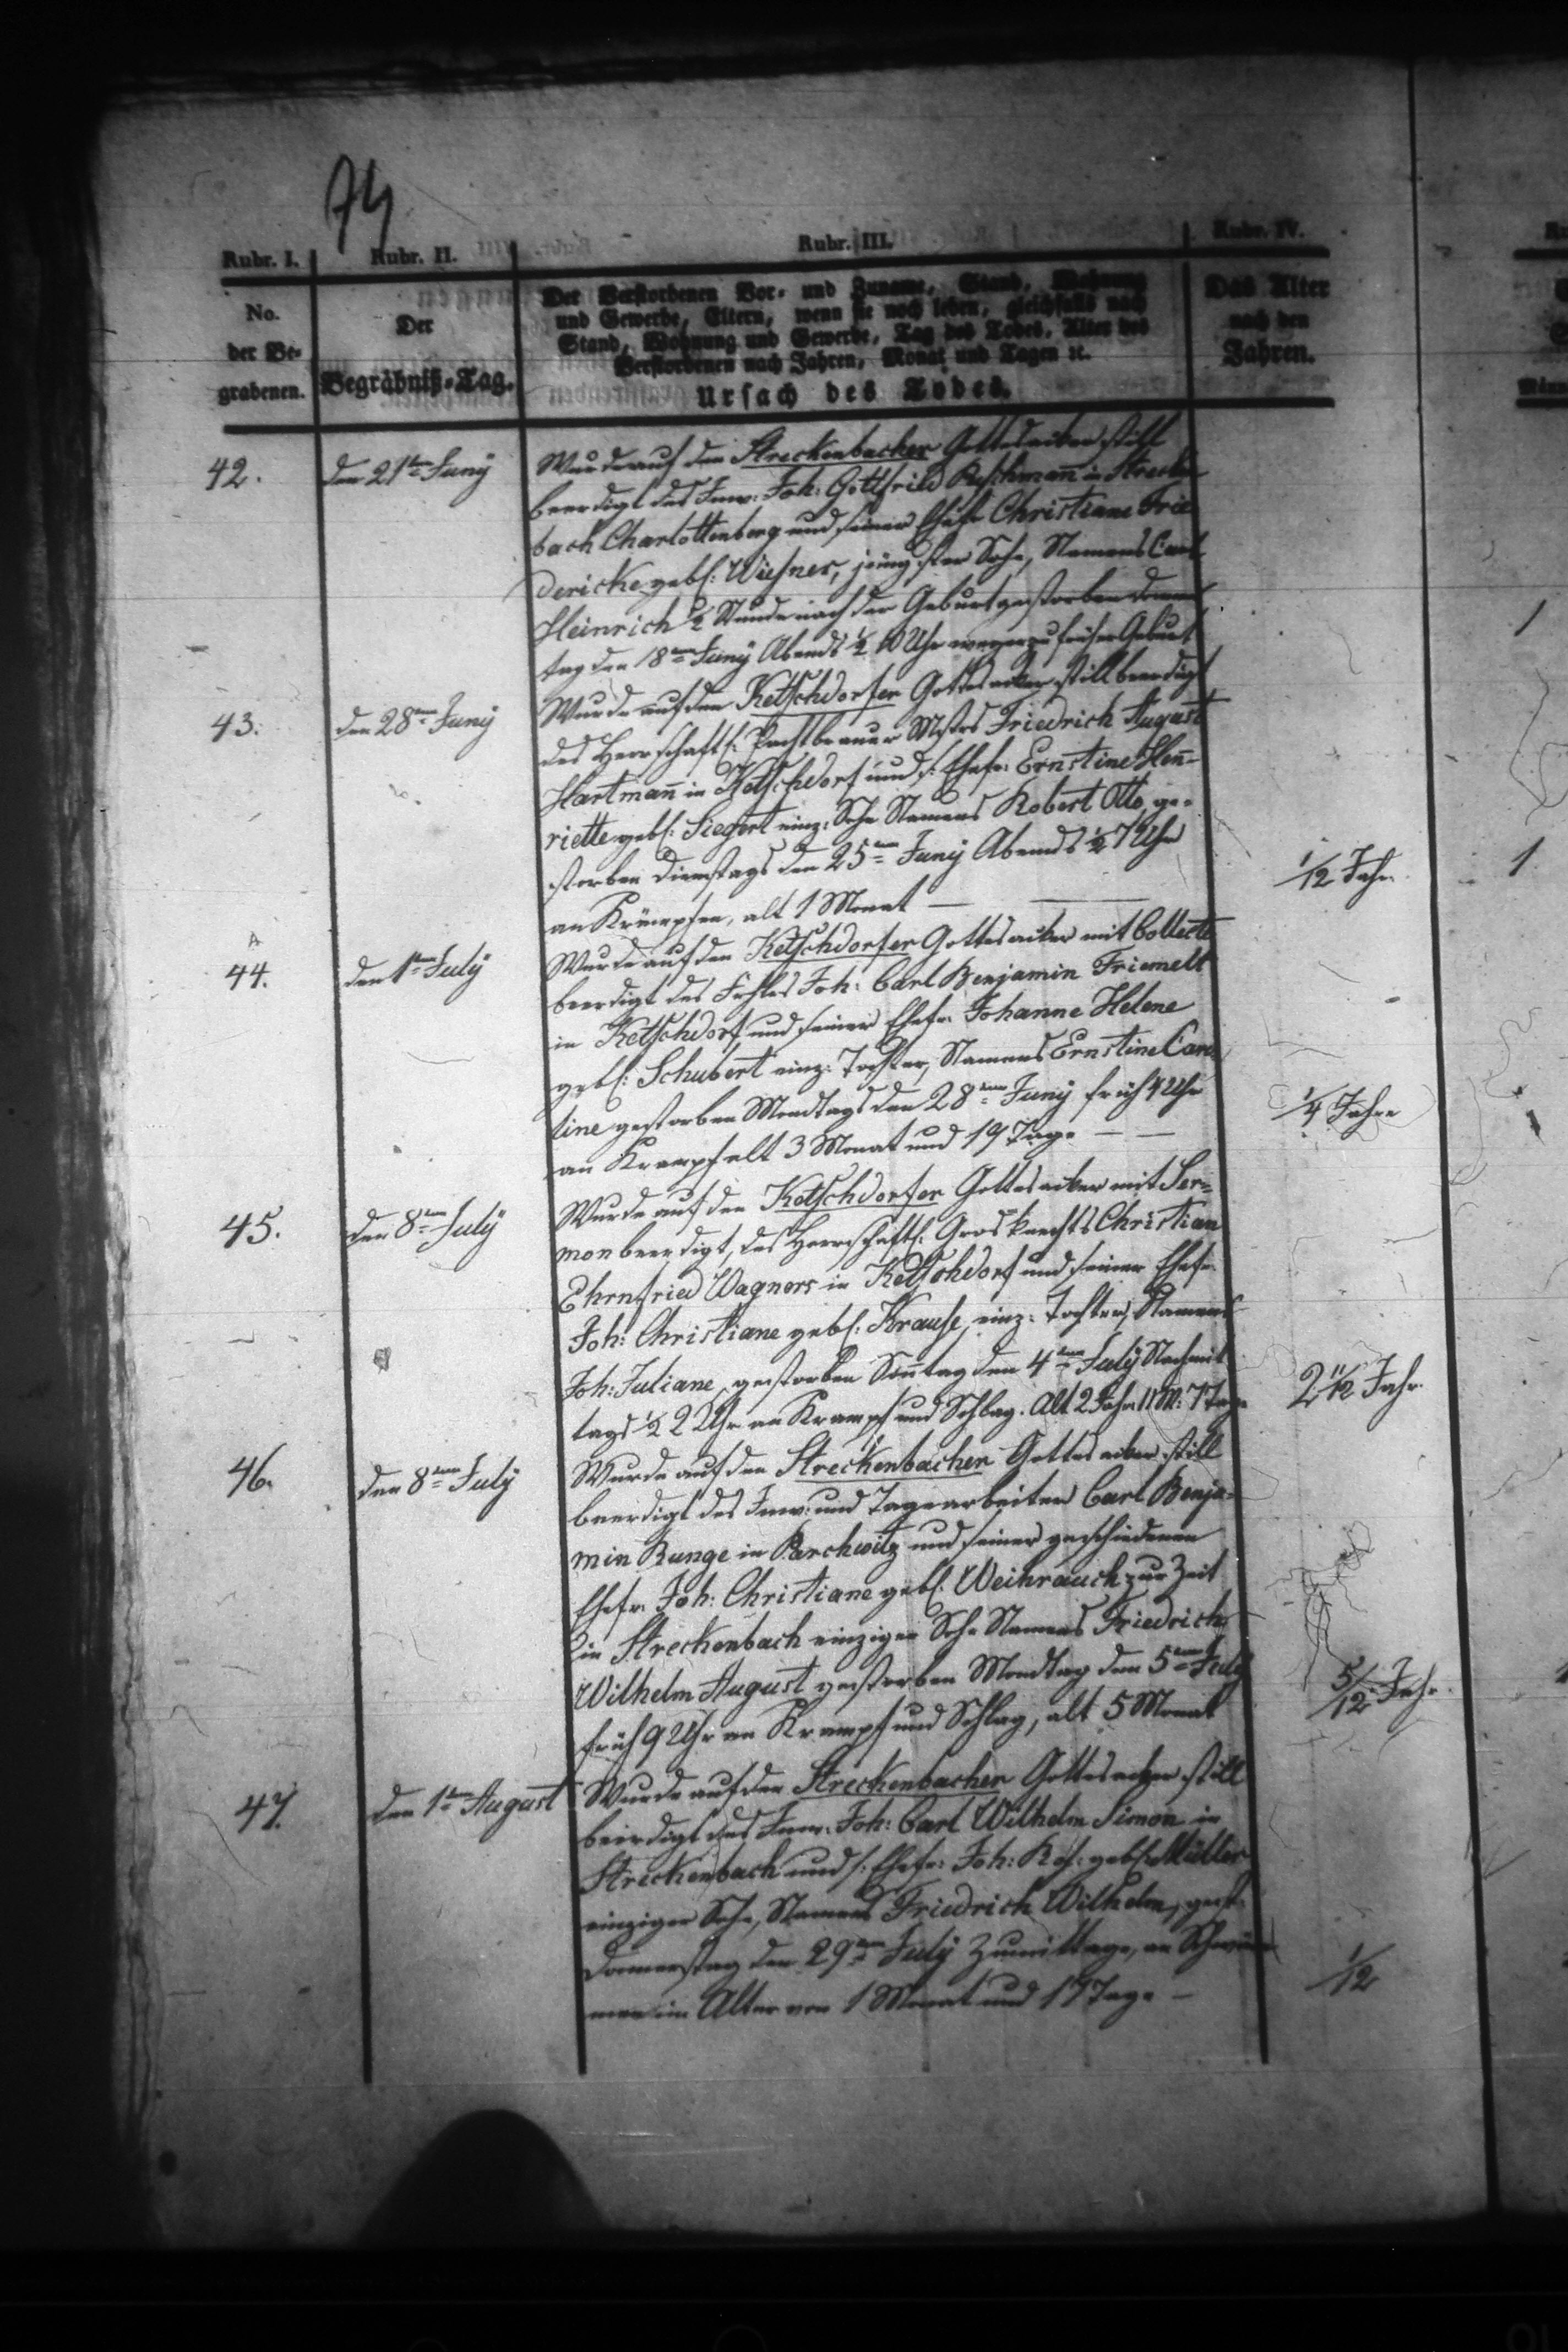 74
Rubr. I. Rubr. II. Rubr. III. Rubr. IV.
No. der Be-grabenen.
Der Begräbniß-Tag.
Der Verstorbenen Vor- und Zuname, Stand, Wohnung
und Gewerbe, Eltern, wenn sie noch leben, gleichfalls nach
Stand, Wohnung und Gewerbe, Tag des Todes, Alter des
Verstorbenen nach Jahren, Monat und Tagen ꝛc.
Ursach des Todes.
Das Alter
nach den
Jahren.
42. den 21ten Juny Wurde auf den Streckenbacher Gottesacker still
beerdigt des Inw: Joh: Gottfried in Strecken
bach Charlottenberg und seiner Ehefr Christiane Frie
dericke geb: Wiesner, jüngster Sohn, Namens Carl
Heinrich ½ Stunde nach der Geburt gestorben
tag den 18ten Juny Abends ½ 10 Uhr wegen zu früher Geburt
43. den 28ten Juny Wurde auf den Ketschdorfer Gottesacker still beerdigt
des Herrschaftl: Pachtbrauer Mstrs Friedrich August
Hartmañ in Ketschdorf und s: Ehefr: Ernstine Heñ-
riette geb: Siegert einz: Sohn Namens Robert Otto ge-
storben Dienstags den 25ten Juny Abends ½ 7 Uhr
an Krämpfen, alt 1 Monat — 1/12 Jahr
44. den 1ten July Wurde auf den Ketschdorfer Gottesacker mit Collecte
beerdigt des Joh: Carl Benjamin Friemelt
in Ketschdorf, und seiner Ehefr: Johanne Helene
geb: Schubert einz: Tochter, Namens Ernstine Caro
line gestorben Mondtags den 28ten Juny früh 4 Uhr
an Krampf alt 3 Monat und 19 Tage — — 1/4 Jahr
45. den 8ten July Wurde auf den Ketschdorfer Gottesacker mit Ser-
mon beerdigt, des Herrschaftl: Grosknechts Christian
Ehrnfried Wagners in Ketschdorf und seiner Ehefr:
Joh: Christiane geb: Krause, einz: Tochter, Namens
Joh: Juliane, gestorben Soñtag den 4ten July Nachmit
tags ½ 2 Uhr an Krampf und Schlag. Alt 2 Jahr 11 M: 7 Tage 2 11/12 Jahr
46. den 8ten July Wurde auf den Streckenbacher Gottesacker still
beerdigt des Inw: und Tagearbeiter Carl Benja-
min Runge in Parchwitz und seiner geschiedenen
Ehefr: Joh: Christiane geb: Weihrauch zur Zeit
in Streckenbach einziger Sohn Namens Friedrich
Wilhelm August gestorben Mondtag den 5ten July
früh 9 Uhr an Krampf und Schlag, alt 5 Monat 5/12 Jahr
47. den 1ten August Wurde auf den Streckenbacher Gottesacker still
beerdigt des Inw: Joh: Carl Wilhelm Simon in
Streckenbach und s: Ehefr: Joh: Ros: geb: Müller
einziger Sohn, Namens Friedrich Wilhelm, gest:
Donnerstag den 29ten July Zumittage, an
men im Alter von 1 Monat und 17 Tage — 1/12
1
1.